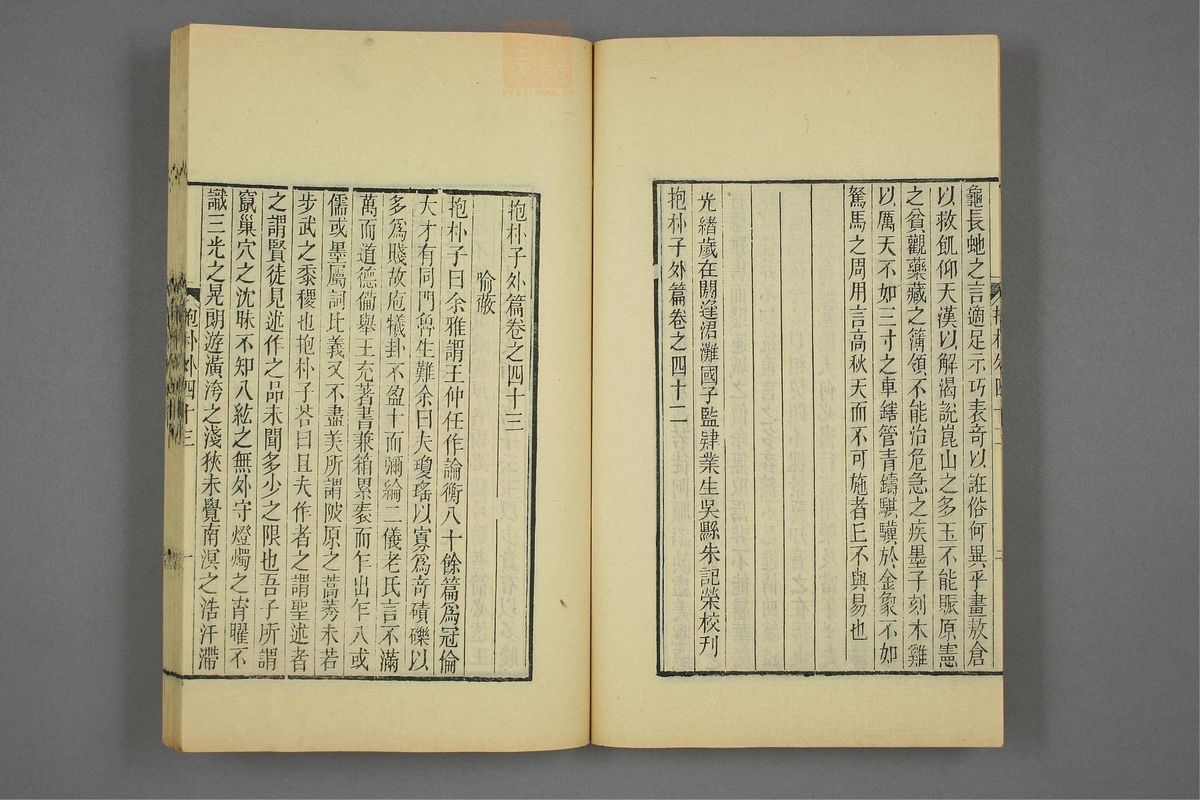 龜長虵之言適足示巧表奇以誑俗何異乎畫敖倉
以救飢仰天漢以解渴說崑山之多玉不能賑原憲
之貧觀藥藏之簿領不能治危急之疾墨子刻木雞
以厲天不如三寸之車鎋管青鑄騏驥於金象不如
駑馬之周用言高秋天而不可施者丘不與易也
光緒歲在閼逢涒灘國子監肄業生吳縣朱記榮校刊
抱朴子外篇卷之四十二
抱朴子外篇卷之四十三
喻蔽
抱朴子曰余雅謂王仲任作論衡八十餘篇爲冠倫
大才有同門魯生難余曰夫瓊瑤以寡爲奇磧礫以
多爲賤故庖犧卦不盈十而彌綸二儀老氏言不滿
萬而道德備舉王充著書兼箱累袠而乍出乍入或
儒或墨屬詞比義又不盡美所謂陂原之蒿莠未若
步武之黍稷也抱朴子荅曰且夫作者之謂聖述者
之謂賢徒見述作之品未聞多少之限也吾子所謂
竄巢穴之沈昧不知八紘之無外守燈燭之宵曜不
識三光之晃朗遊潢洿之淺狹未覺南溟之浩汗滯
抱朴外四十三
一